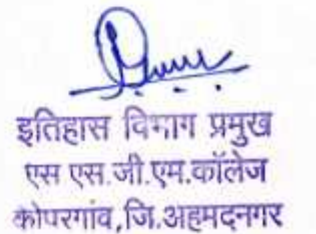 इतिहास विभाग प्रमुख
एस एस.जी.एम.कॉलेज
कोपरगांव,जि.अहमदनगर